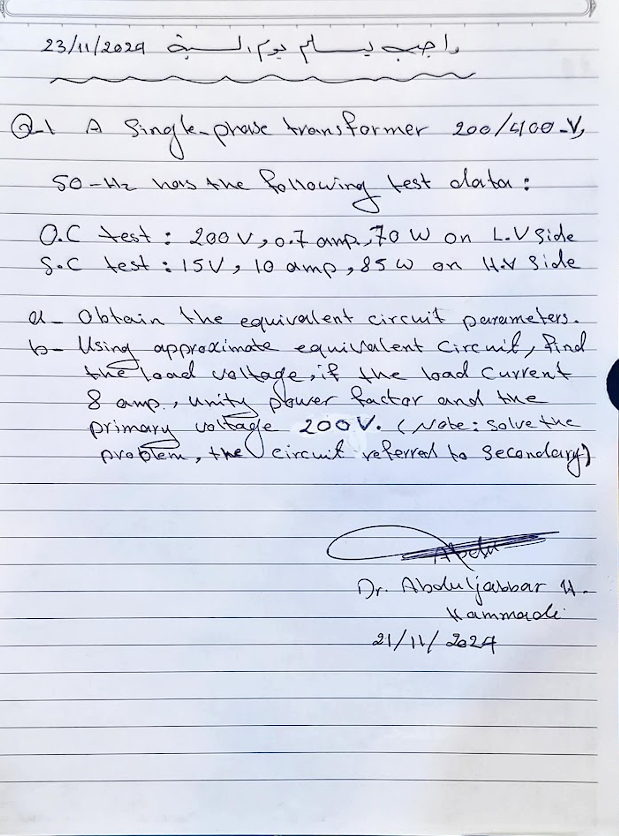 واجب يسلم يوم السبت 23/11/2024
Q-1 A Single-phase transformer 200/400-V,
50-Hz has the following test data:
O.C test: 200V, 0.7 amp, 70 W on L.V Side
S.C test: 15V, 10 amp, 85w on H.V Side
a- Obtain the equivalent circuit parameters.
b- Using approximate equivalent Circuit, find
the load voltage, if the load current
8 amp., unity power factor and the
primary voltage 200V. (Note: solve the
problem, the circuit referred to Secondary)
Dr. Abduljabbar H.
Kammadi
21/11/2024